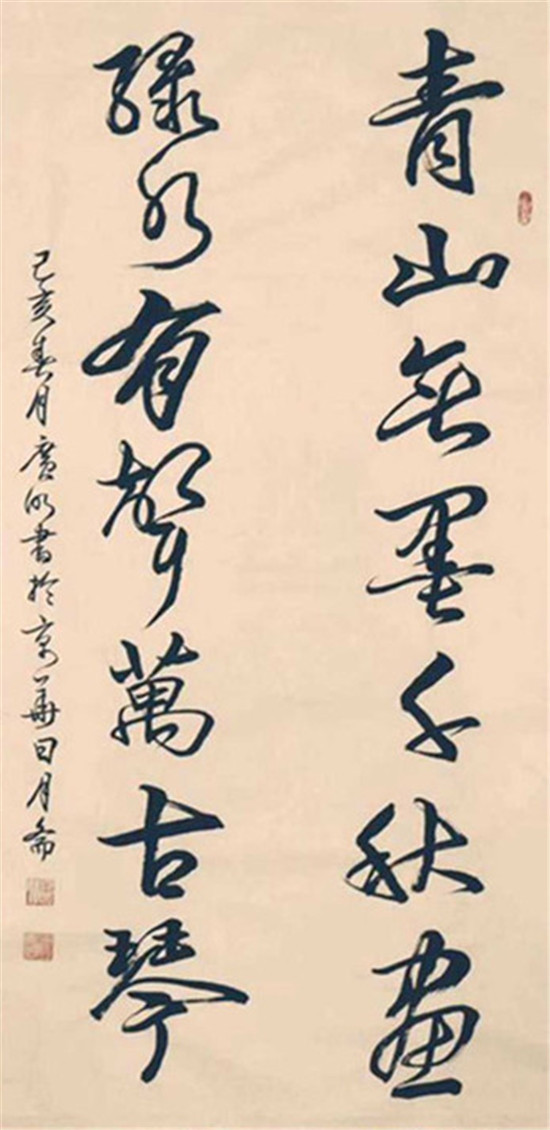 青山無墨千秋畫
綠水有聲萬古琴
己亥春月廣明書於京華日月齋